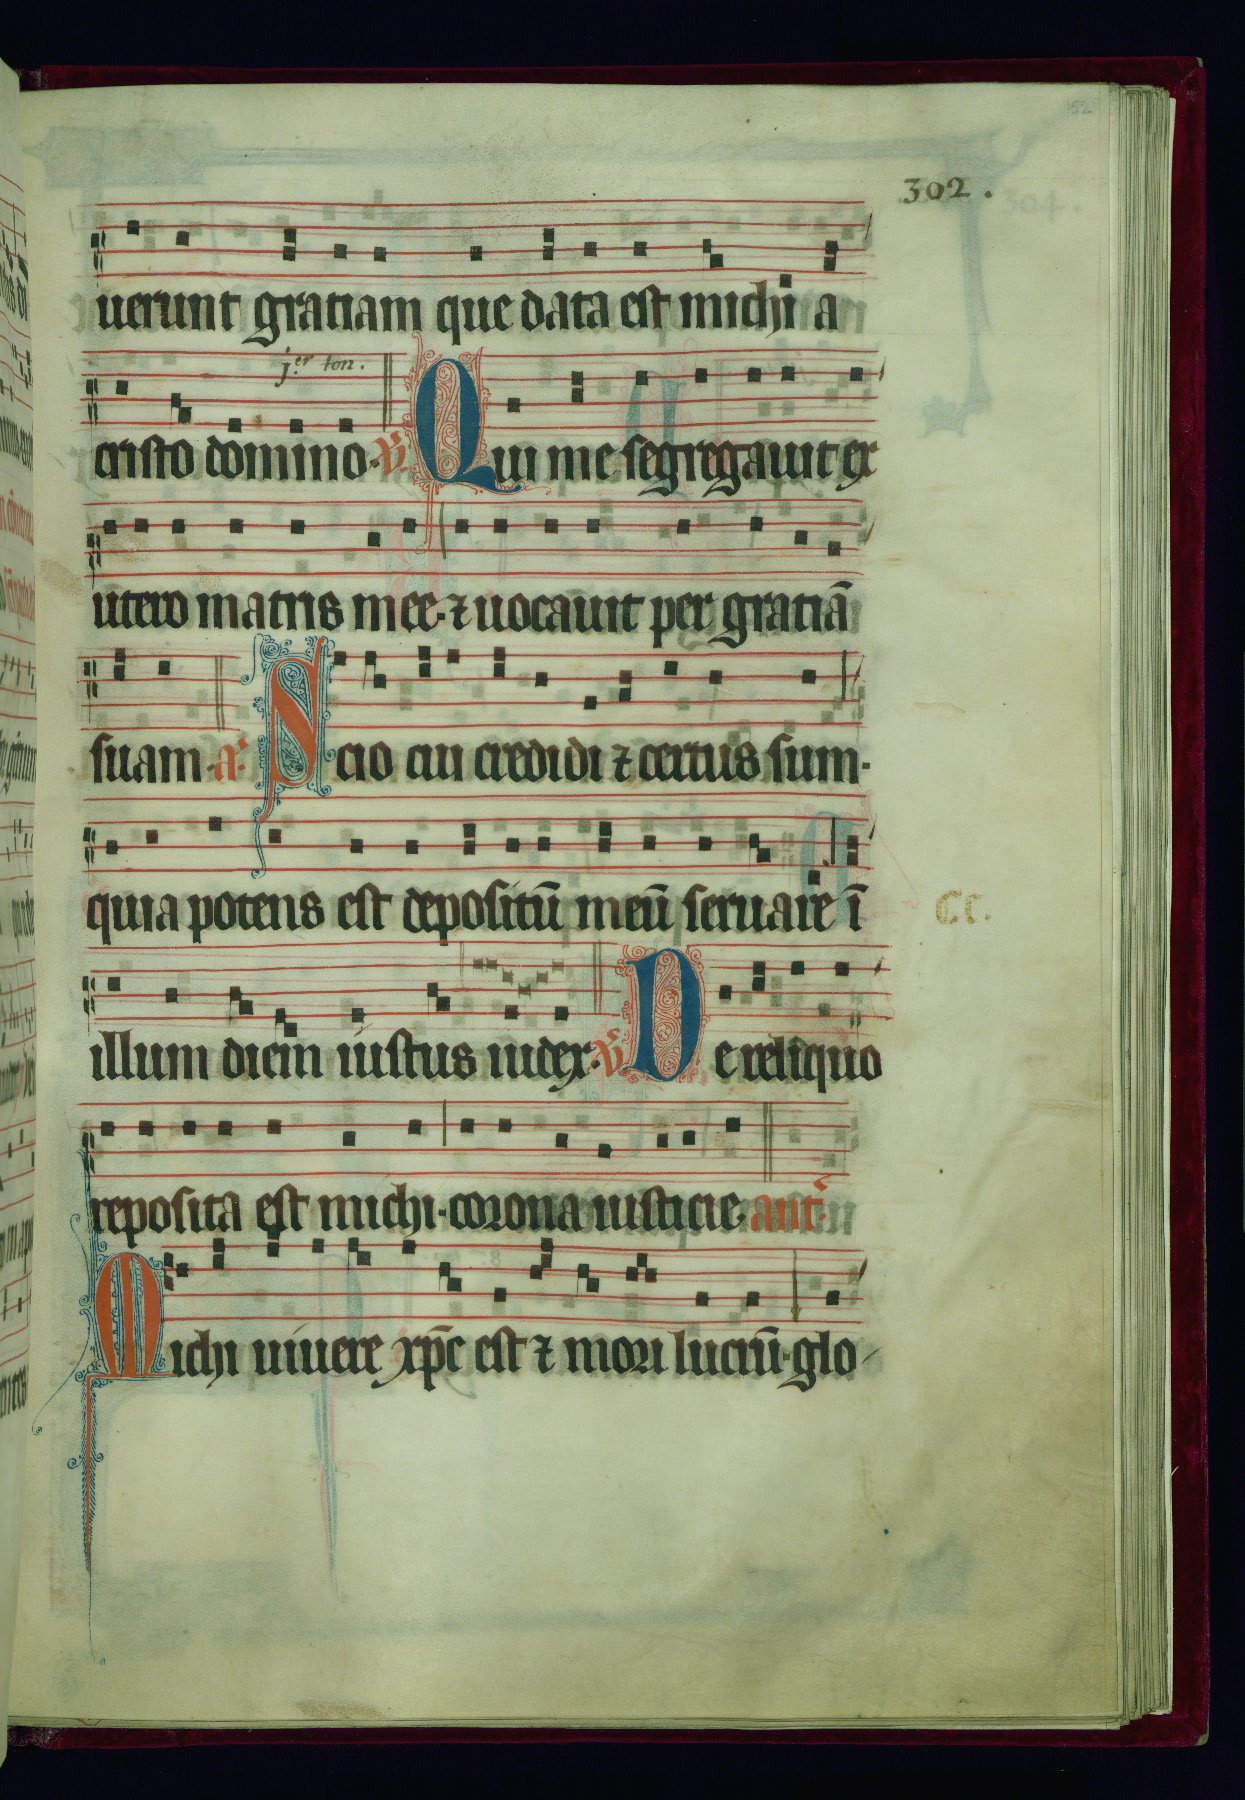 152
302.
304.
uerunt gratiam que data est michi a
j.er ton.
cristo domino. V. Qui me segregauit ex
utero matris mee. ⁊ uocauit per gratiā
suam. a. Scio cui credidi ⁊ certus sum.
quia potens est depositū meū seruare ī
CC.
illum diem iustus iudex. V. De reliquo
reposita est michi. corona iusticie. ant.
Michi uiuere xp̄c est ⁊ mori lucrū. glo